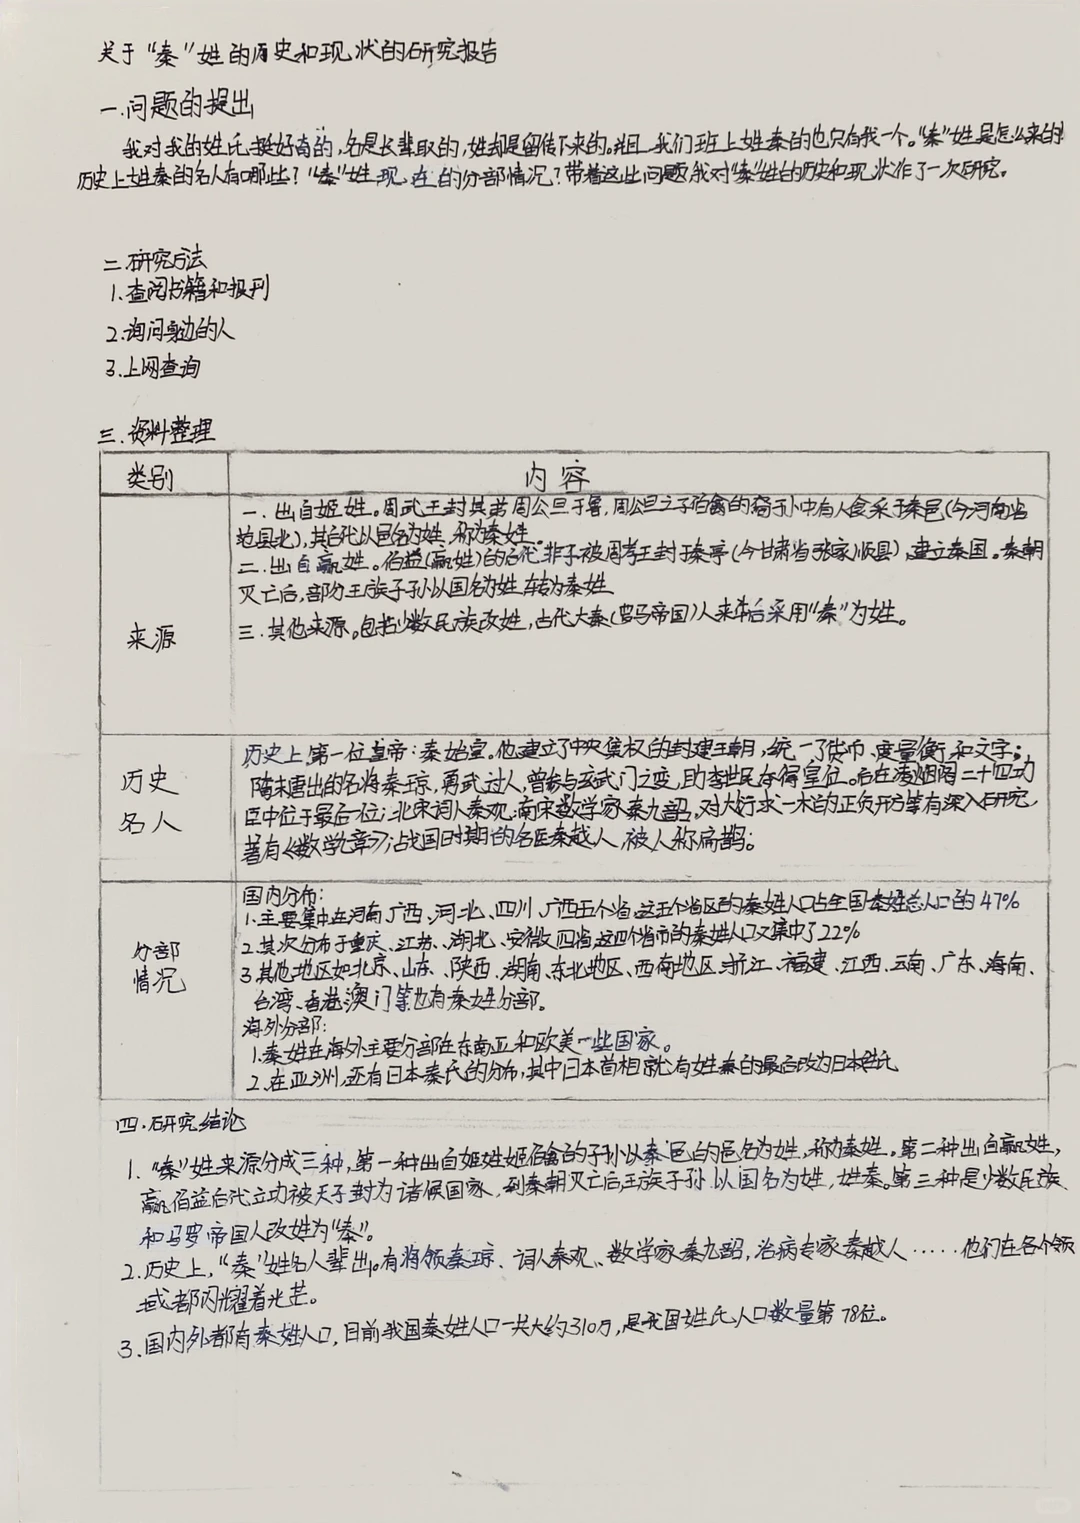 关于“秦”姓的历史和现状的研究报告
一.问题的提出
我对我的姓氏挺好奇的,名是长辈取的,姓却是留传下来的。并且我们班上姓秦的也只有我一个。“秦”姓是怎么来的
历史上姓秦的名人有哪些?“秦”姓现在的分部情况?带着这些问题我对“秦”姓的历史和现状作了一次研究。
二.研究方法
1.查阅书籍和报刊
2.询问身边的人
3.上网查询
三.资料整理
类别 内容
来源
一.出自姬姓。周武王封其弟周公旦于鲁,周公旦之子伯禽的裔孙中有人食采于秦邑(今河南省
范县北),其后代以邑名为姓,称为秦姓。
二.出自嬴姓。伯益(嬴姓)的后代非子被周孝王封于秦亭(今甘肃省张家川县),建立秦国。秦朝
灭亡后,部分王族子孙以国名为姓,转为秦姓
三.其他来源。包括少数民族改姓,古代大秦(罗马帝国)人来华后采用“秦”为姓。
历史
名人
历史上第一位皇帝:秦始皇。他建立了中央集权的封建王朝,统一了货币、度量衡和文字;
隋末唐出的名将秦琼,勇武过人,曾参与玄武门之变,助李世民夺得皇位。后在凌烟阁二十四功
臣中位于最后一位;北宋词人秦观;南宋数学家秦九韶,对大衍求一术的正负开方等有深入研究,
著有《数学九章》;战国时期的名医秦越人,被人称扁鹊。
分部
情况
国内分布:
1.主要集中在河南、广西、河北、四川、广西五个省,这五个省区的秦姓人口占全国秦姓总人口的47%
2.其次分布于重庆、江苏、湖北、安徽四省,这四个省市的秦姓人口又集中了22%
3.其他地区如北京、山东、陕西、湖南、东北地区、西南地区、浙江、福建、江西、云南、广东、海南、
台湾、香港、澳门等也有秦姓分部。
海外分部:
1.秦姓在海外主要分部在东南亚和欧美一些国家。
2.在亚洲,还有日本秦氏的分布,其中日本首相就有姓秦的最后改为日本姓氏
四.研究结论
1.“秦”姓来源分成三种,第一种出自姬姓姬伯禽的子孙以秦邑的邑名为姓,称为秦姓。第二种出自嬴姓,
嬴伯益后代立功被天子封为诸候国家,到秦朝灭亡后,王族子孙以国名为姓,姓秦。第三种是少数民族
和马罗帝国人改姓为“秦”。
2.历史上,“秦”姓名人辈出。有将领秦琼、词人秦观、数学家秦九韶,治病专家秦越人……他们在各个领
域都闪耀着光芒。
3.国内外都有秦姓人口,目前我国秦姓人口一共大约310万,是我国姓氏人口数量第78位。